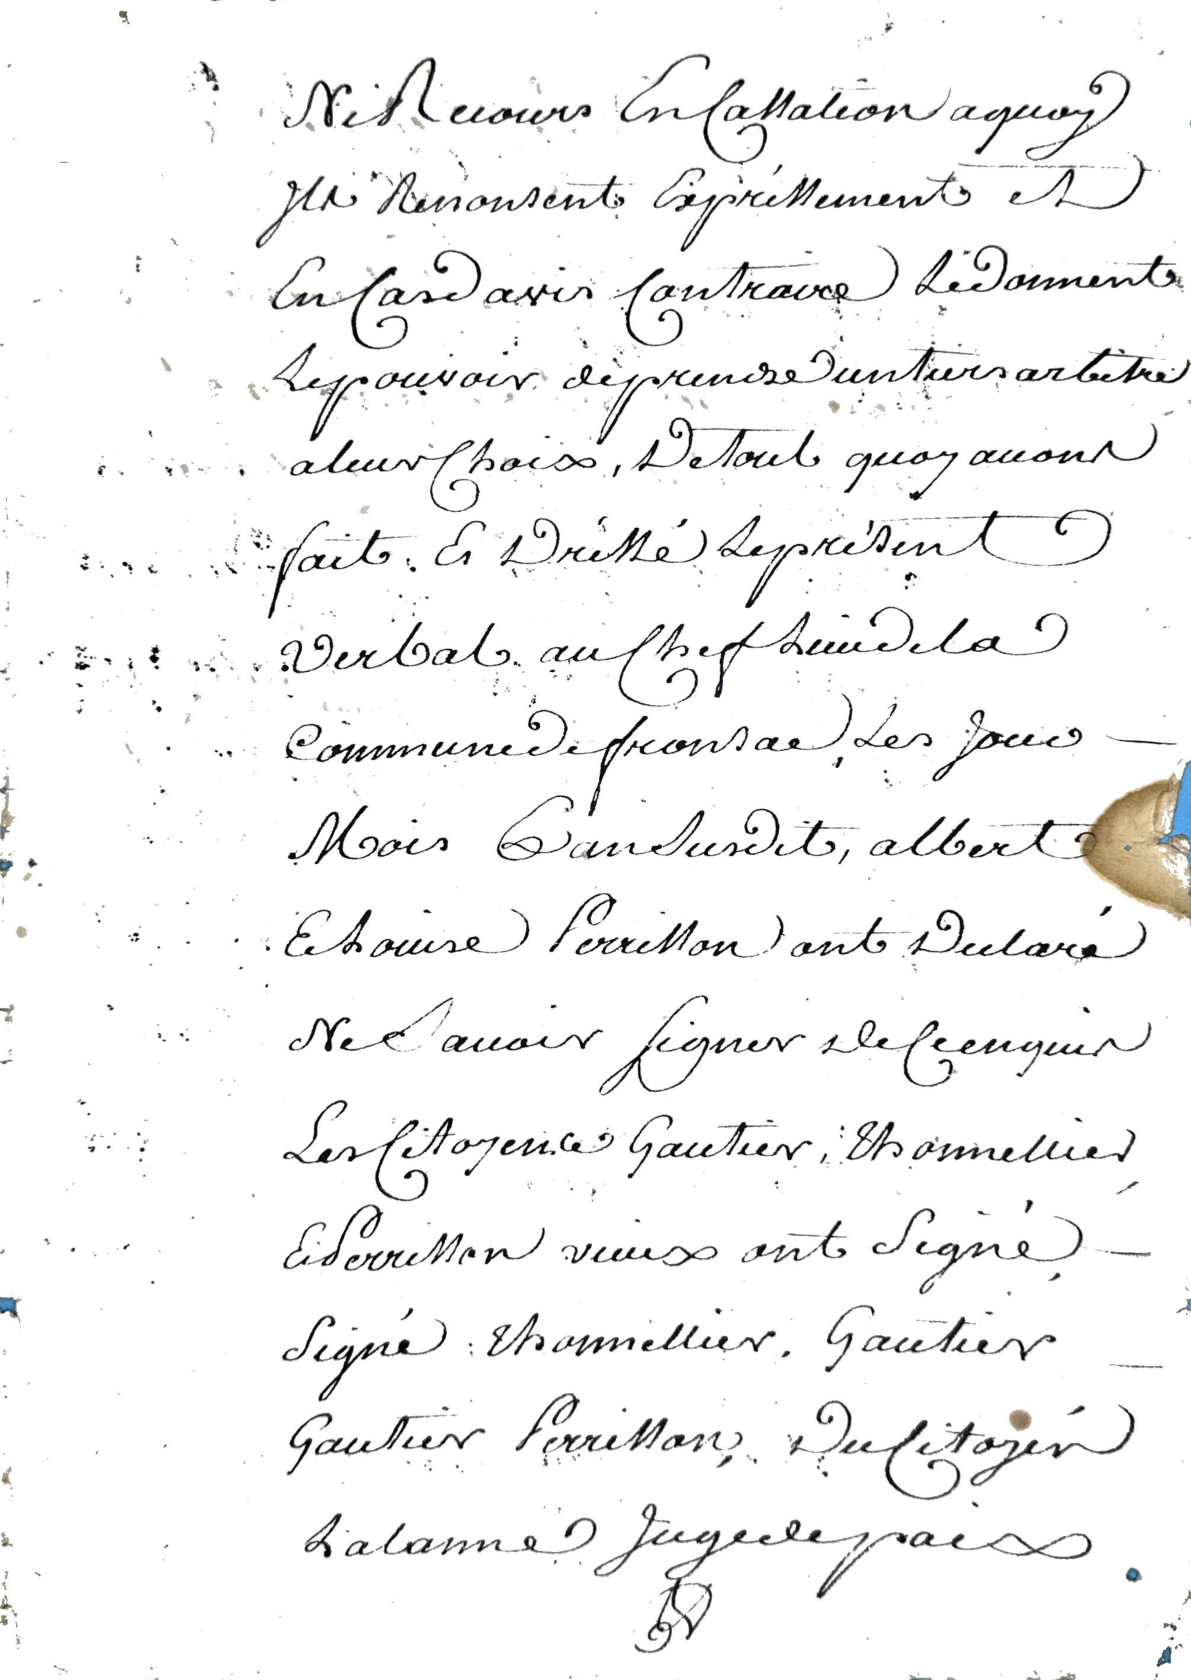 Ni Recours En Cassation a quoy
Ils Renonsent Expréssement et
En Cas d'avis Contraire Lédonnent
Le pouvoir de prendre un tiers arbitre
a leur Choix, De tout quoy avons
fait Et Dréssé Le présent
Verbal au Chef Lieu de la
Commune de fronsac, Les Jour
Mois & an Susdit, albert
E Louise Perrisson ont Declaré
Ne Savoir Signer de Ce enquis
Les Citoyens Gautier, Thonnellier
Et Perrisson vieux ont Signé
Signé Thonnellier, Gautier
Gautier Perrisson, Du Citoyen
Lalanne Juge de paix